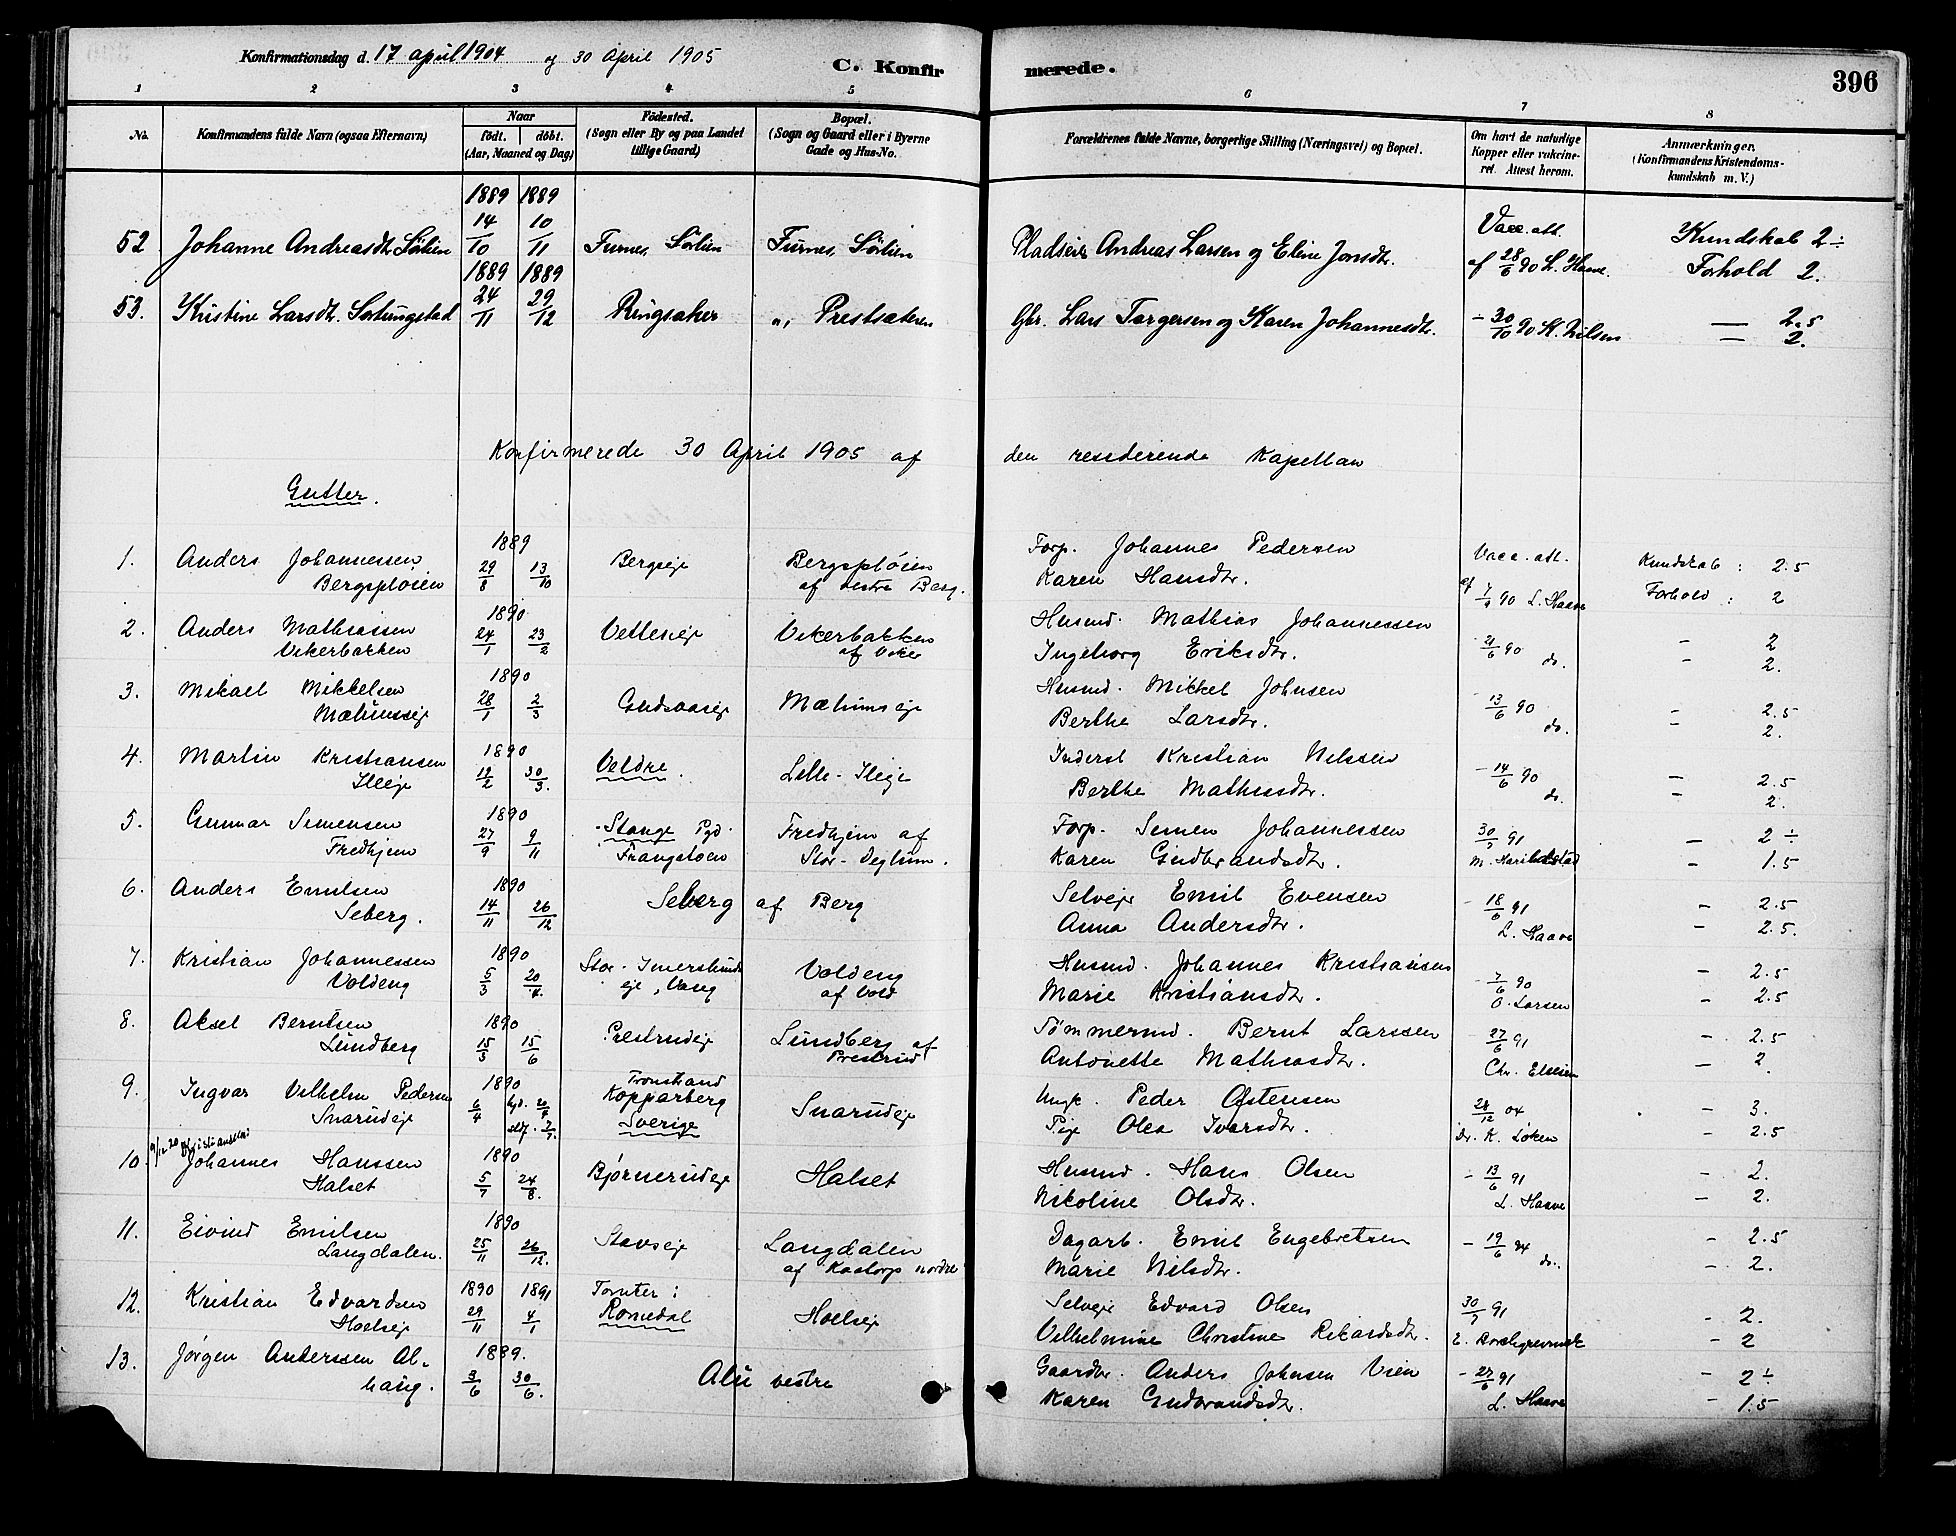 Konfirmationsdag d. 17 april 1904 og 30 April 1905
C. Konfirmerede.
396
1 2 3 4 5 6 7 8
No.
Konfirmandens fulde Navn (ogsaa Efternavn)
Naar
födt. döbt.
(Aar, Maaned og Dag)
Födested.
(Sogn eller By og paa Landet
tillige Gaard)
Bopæl.
(Sogn og Gaard eller i Byerne
Gade og Hus-No.
Forældrenes fulde Navne, borgerlige Stilling (Næringsvei) og Bopæl.
Om havt de naturlige
Kopper eller vakcine-
ret. Attest herom.
Anmærkninger.
(Konfirmandens Kristendoms-
kundskab m. V.)
1889 1889
52 Johanne Andreasdt. Sörlien 14/10 10/11 Furnes, Sörlien Furnes, Sörlien Pladseier Andreas Larsen og Eline Jonsdtr. Vacc. att. af 28/6 90 L. Haave. Kundskab 2÷
Forhold 2.
1889 1889
53. Kristine Larsdt. 24/11 29/12 Ringsaker „ Prestsæteren Gbr. Lars Torgersen og Karen Johannesdtr. - 30/10 90 K. Nilsen — 2.5
— 2.
Konfirmerede 30 April 1905 af den residerende Kapellan
Gutter.
1. Anders Johannessen 1889 Bergseje Bergspløien Forp. Johannes Pedersen Vacc. att. Kundskab : 2.5
Bergspløien 29/8 13/10 af vestre Berg. Karen Hansdtr. af 7/9 90 L. Haave Forhold : 2
2. Anders Mathiassen 1890 Vetteseje Vikerbakken Husmd. Mathias Johannessen - 2
Vikerbakken 24/1 23/2 af Viker Ingeborg Eriksdtr. 21/6 90 do. - 2.
3. Mikael Mikkelsen 1890 Mælumseje Husmd. Mikkel Johnsen - 13/6 90 - 2.5
Mælumseje 28/1 2/3 Berthe Larsdtr. do. - 2.
4. Martin Kristiansen 1890 Veldre. Lille-Ileje Inderst Kristian Nilssen - 14/6 90 - 2.5
Ileje 19/2 30/3. Berthe Mathiasdtr. do. - 2.
5. Gunnar Simensen 1890 Stange Pgd. Fredhjem af Forp. Simen Johannessen 30/7 91 - 2÷
Fredhjem 27/9 9/11 Stor-Deglum. Karen Gudbrandsdtr. - 1.5
6. Anders Emilsen 1890 Seberg af Berg Selvejer Emil Evensen - 18/6 91 - 2.5
Seberg. 14/11 26/12 Anna Andersdtr. L. Haave - 2.5.
7. Kristian Johannessen 1890 Voldeng Husmd. Johannes Kristiansen - 7/6 90 - 2.5
Voldeng 5/3 20/4. eje, Vang af Vold Marie Kristiansdtr. O. Larsen - 2.5
8. Aksel Berntsen 1890 Prestrudeje Lundberg af Tømmermd. Bernt Larssen - 27/6 91 - 2.5
Lundberg 15/3 15/6 Prestrud Antonette Mathiasdtr. Chr. Elseien - 2.
9. Ingvar Vilhelm Pedersen 1890 Kopparberg Snarudeje Ungk. Peder Østensen 28/12 04 - 3.
Snarudeje 6/4 Sverige Pige Olea Ivarsdtr. Dr. K. Løken - 2.5
10. Johannes Hanssen 1890 Bjørnerudeje Halset Husmd. Hans Olsen - 13/6 91 - 2.
Halset 5/7 24/8. Nikoline Olsdtr. L. Haave - 2.
11. Eivind Emilsen 1890 Stavseje Langdalen Dagarb. Emil Engebretsen - 19/6 94 - 2.5
Langdalen. 25/11 26/12. af Kaatorp nordre Marie Nilsdtr. do. - 2.
12. Kristian Edvardsen 1890 1891 Tomter: Hoelseje Selvejer Edvard Olsen 30/7 91 - 2.
Hoelseje 29/11 4/1 Romedal Vilhelmine Christine Rikardsdtr. - 2
13. Jørgen Anderssen Al- 1889. Alu vestre Gaardbr. Anders Johnsen Vien - 27/6 91 - 2÷
haug. 3/6 30/6. Karen Gudbrandsdtr. L. Haave - 1.5